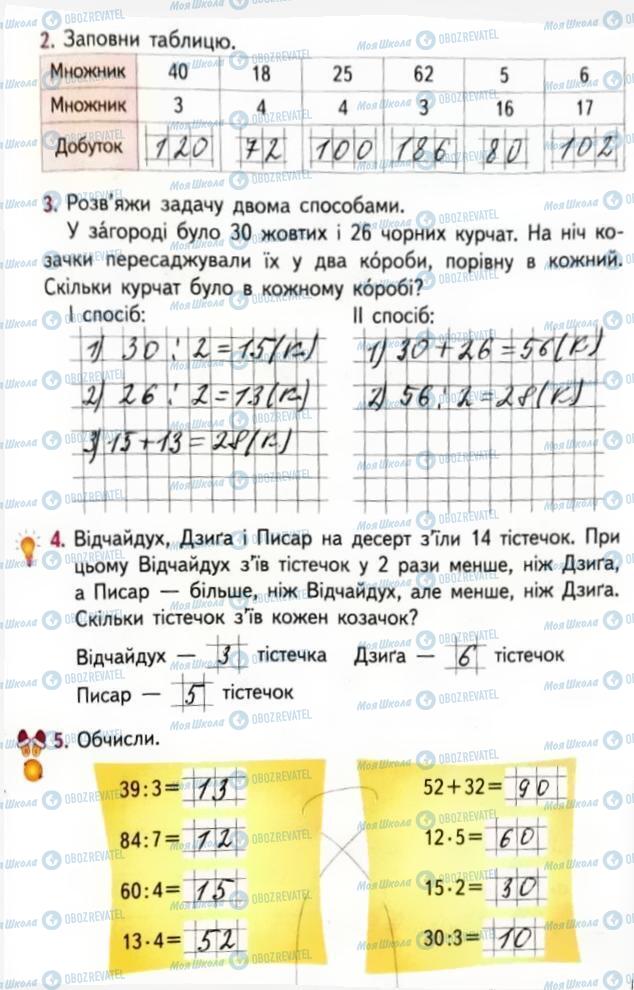 2. Заповни таблицю.
Множник 40 18 25 62 5 6
Множник 3 4 4 3 16 17
Добуток 120 72 100 186 80 102
3. Розв'яжи задачу двома способами.
У за́городі було 30 жовтих і 26 чорних курчат. На ніч ко-
зачки пересаджували їх у два ко́роби, порівну в кожний.
Скільки курчат було в кожному ко́робі?
І спосіб: ІІ спосіб:
1) 30 : 2 = 15 (к) 1) 30 + 26 = 56 (к)
2) 26 : 2 = 13 (к) 2) 56 : 2 = 28 (к)
3) 15 + 13 = 28 (к)
4. Відчайдух, Дзиґа і Писар на десерт з'їли 14 тістечок. При
цьому Відчайдух з'їв тістечок у 2 рази менше, ніж Дзиґа,
а Писар — більше, ніж Відчайдух, але менше, ніж Дзиґа.
Скільки тістечок з'їв кожен козачок?
Відчайдух — 3 тістечка Дзиґа — 6 тістечок
Писар — 5 тістечок
5. Обчисли.
39:3= 13 52+32= 90
84:7= 12 12·5= 60
60:4= 15 15·2= 30
13·4= 52 30:3= 10
МояШкола OBOZREVATEL